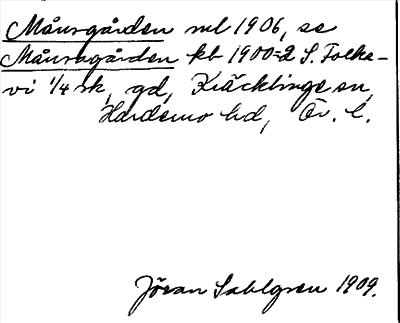 Månsgården ml 1906, se
Månsagården kb 1900=2 S. Folka-
vi 1/4 sk, gd, Kräcklinge sn,
Hardemo hd, Ör. l.
Jöran Sahlgren 1909.